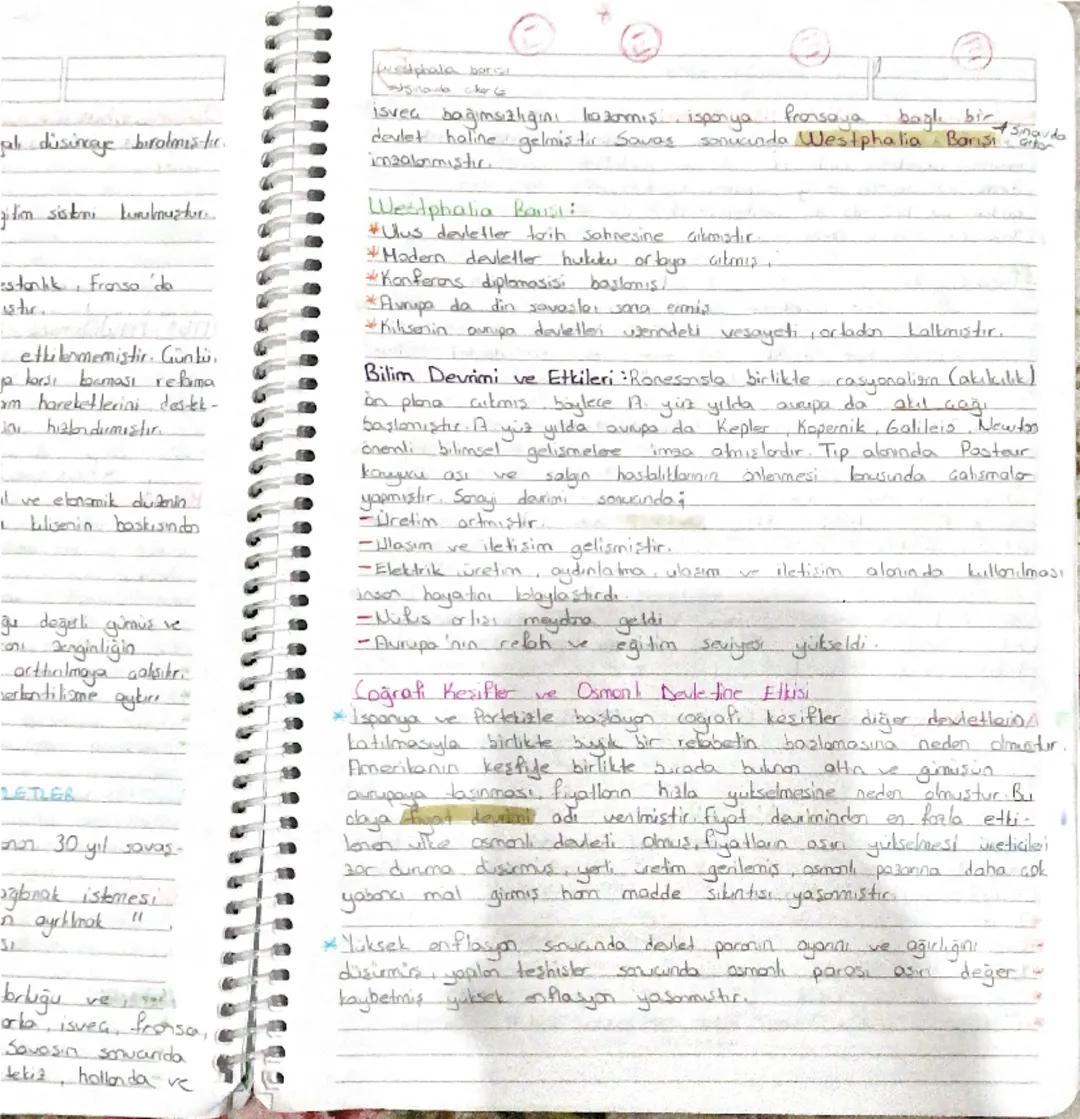 şalı düşünceye bırakmıştır.
ğitim sistemi kurulmuştur.
estanlık, Fransa'da
ıştır.
etkilenmemiştir. Günkü,
pa karşı barması reforma
hareketlerini destek-
hızlandırmıştır.
il ve ekonomik düzenin
kilisenin baskısından
değerli gümüş ve
zenginliğin
arttırılmaya çalışılır.
merkantilizme aykırı
LETLER
30 yıl savaş-
istemesi
ayrılmak "
sı
ve
isveç, fransa,
Savaşın sonucunda
tekiz, hollanda ve
westphala barışı
sınavda çıkar
isveç bağımsızlığını kazanmış, ispanya fransaya bağlı bir
devlet haline gelmiştir. Savaş sonucunda Westphalia Barışı → sınavda çıkar
imzalanmıştır.
Westphalia Barışı:
*Ulus devletler tarih sahnesine çıkmıştır.
*Modern devletler hukuku ortaya çıkmış,
*Konferans diplomasisi başlamış,
*Avrupa da din savaşları sona ermiş
*Kilisenin avrupa devletleri üzerindeki vesayeti, ortadan kalkmıştır.
Bilim Devrimi ve Etkileri: Rönesansla birlikte rasyonalizm (akılcılık)
ön plana çıkmış, böylece 17. yüz yılda avrupa da akıl çağı
başlamıştır. 17 yüz yılda avrupa da Kepler, Kopernik, Galileis, Newton
önemli bilimsel gelişmelere imza atmışlardır. Tıp alanında Pasteur
aşı ve salgın hastalıklarının önlenmesi konusunda çalışmalar
yapmıştır. Sanayi devrimi sonucunda;
-Üretim artmıştır.
-Ulaşım ve iletişim gelişmiştir.
-Elektrik üretim, aydınlatma, ulaşım ve iletişim alanında kullanılması
insan hayatını kolaylaştırdı.
-Nüfus artışı meydana geldi
-Avrupa'nın refah ve eğitim seviyesi yükseldi.
Coğrafi Keşifler ve Osmanlı Devletine Etkisi
*İspanya ve Portekizle başlayan coğrafi keşifler diğer devletlerin
katılmasıyla birlikte büyük bir rekabetin başlamasına neden olmuştur.
Amerikanın keşfiyle birlikte burada bulunan altın ve gümüşün
avrupaya taşınması, fiyatların hızla yükselmesine neden olmuştur. Bu
olaya fiyat devrimi adı verilmiştir. Fiyat devriminden en fazla etki-
lenen ülke osmanlı devleti olmuş, fiyatların aşırı yükselmesi üreticileri
zor duruma düşürmüş, yerli üretim gerilemiş, osmanlı pazarına daha çok
yabancı mal girmiş ham madde sıkıntısı yaşanmıştır.
*Yüksek enflasyon sonucunda devlet paranın ayarını ve ağırlığını
düşürmüş, yapılan teşhisler sonucunda osmanlı parası aşırı değer
kaybetmiş yüksek enflasyon yaşanmıştır.